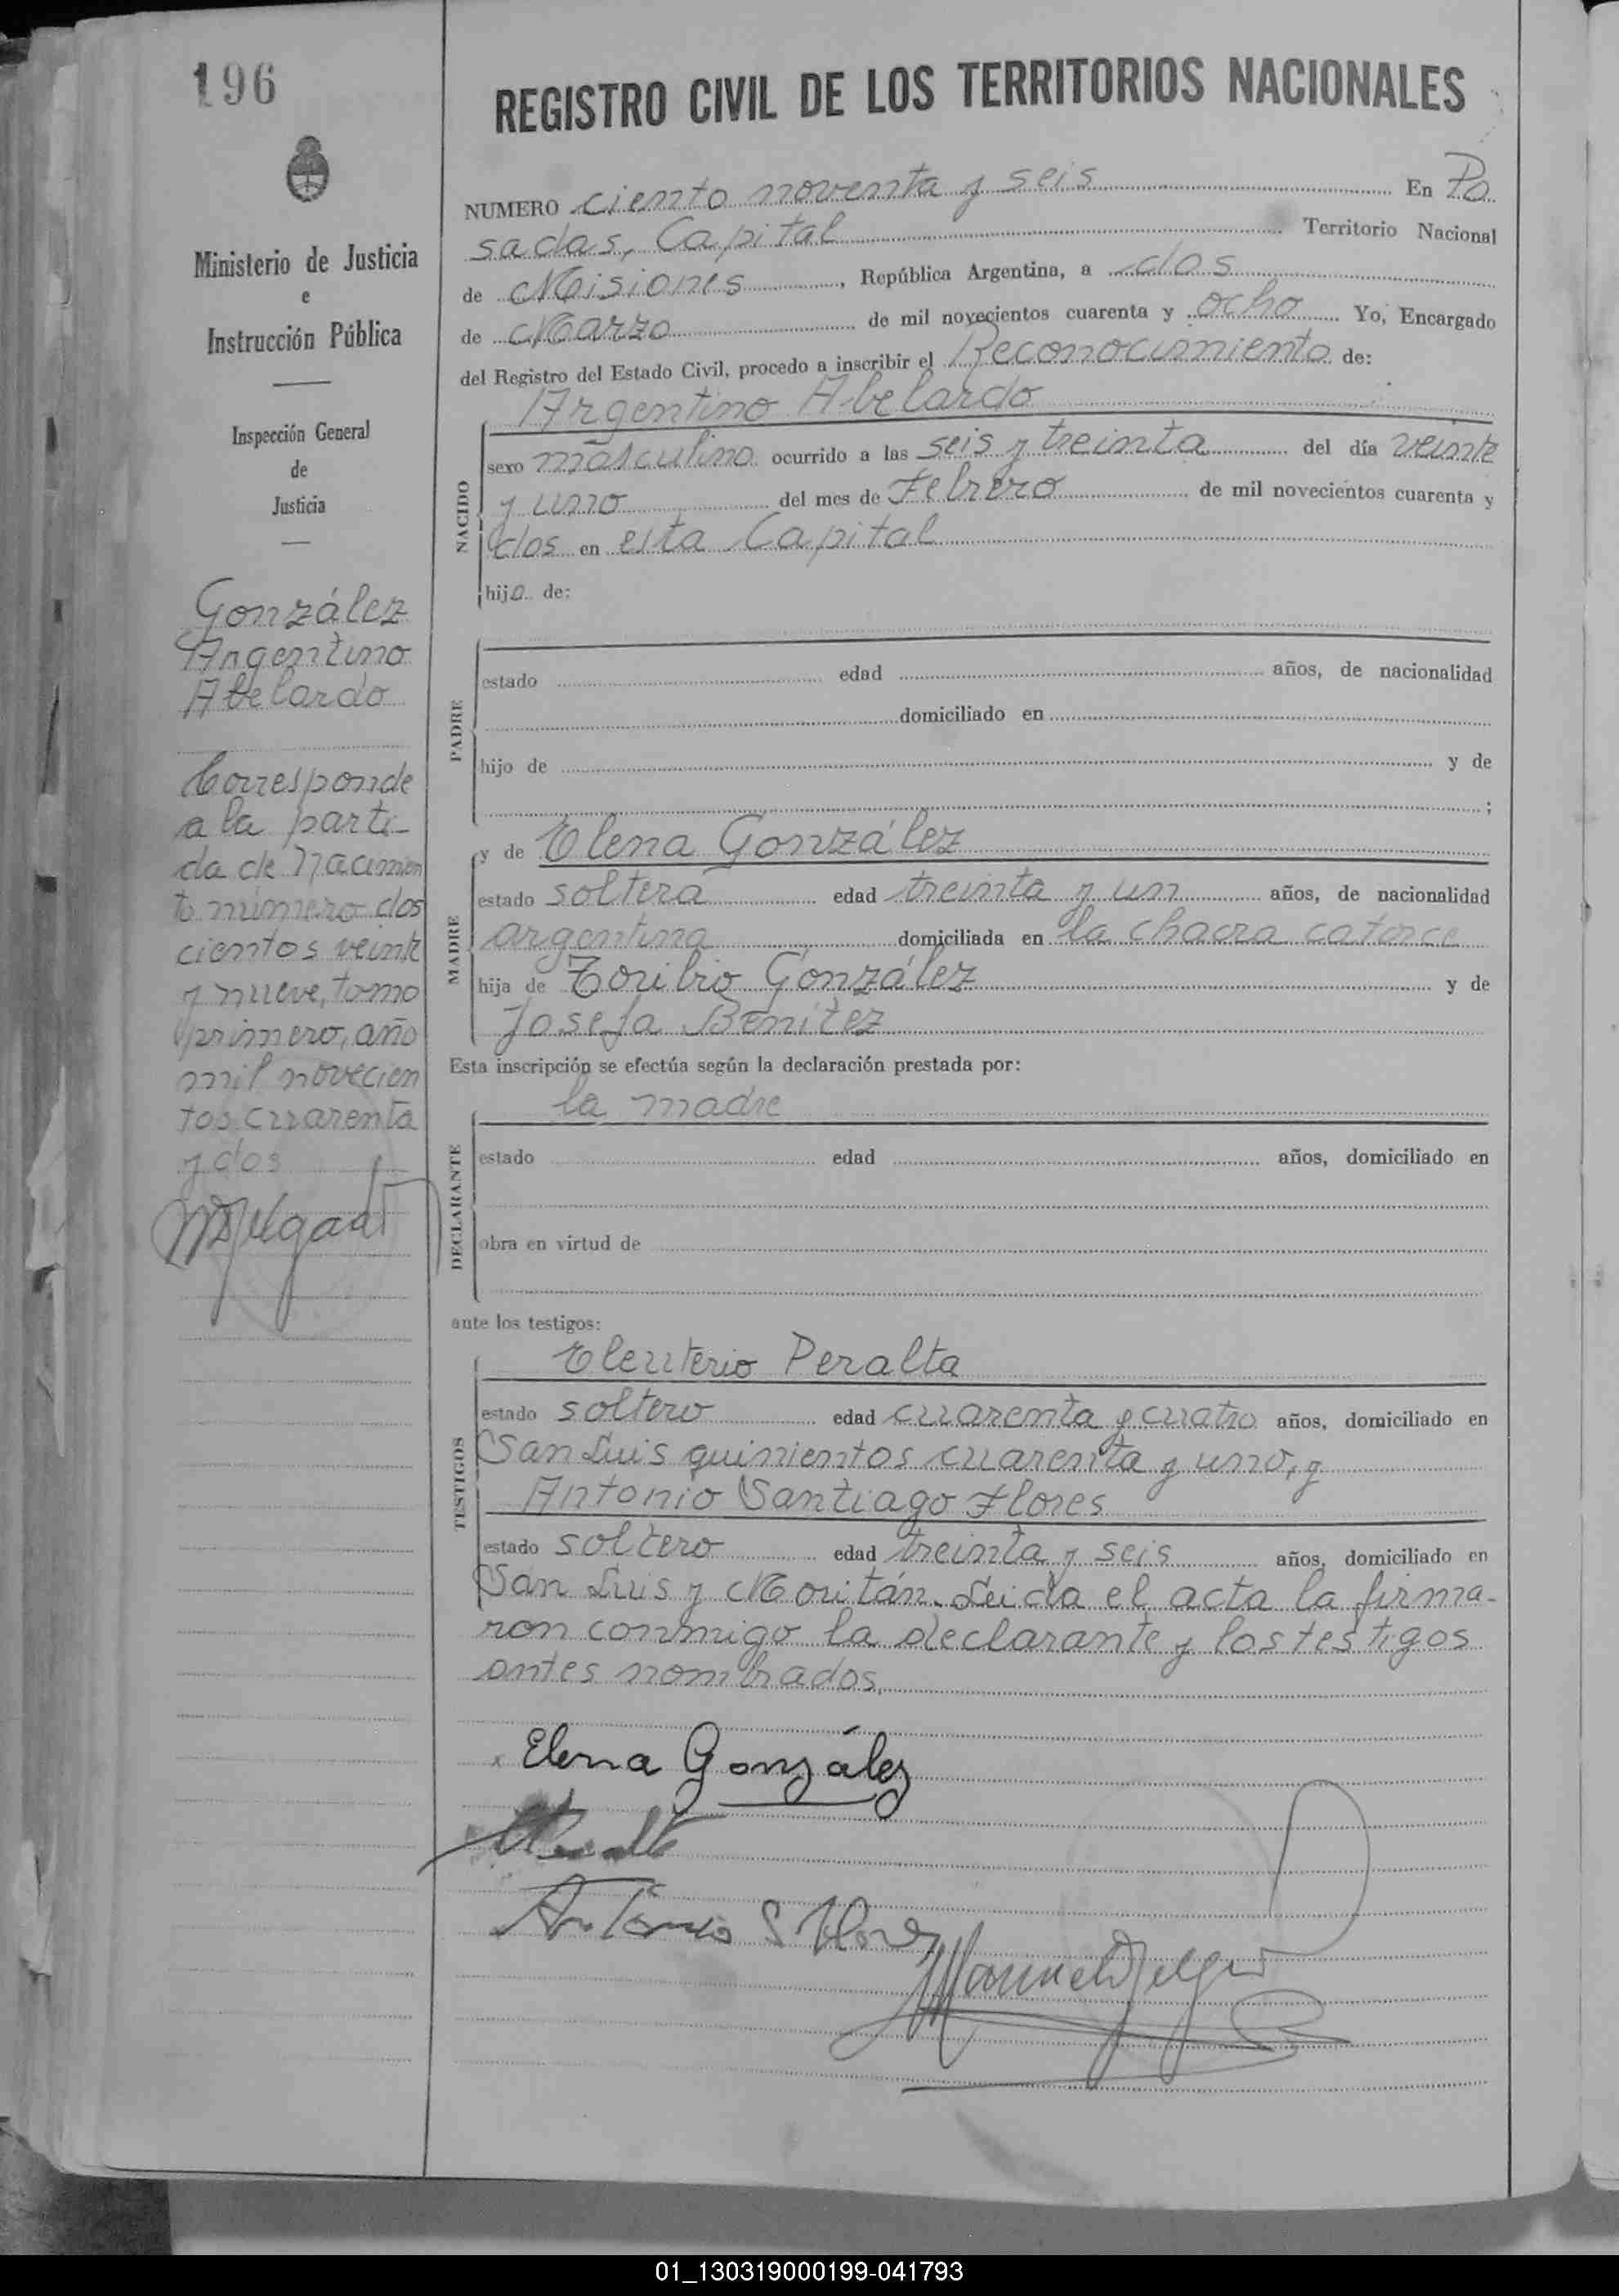 196
Ministerio de Justicia
e
Instrucción Pública
Inspección General
de
Justicia
González
Argentino
Abelardo
Corresponde
a la parti-
da de Nacimien
to número dos
cientos veinte
y nueve, tomo
primero, año
mil novecien
tos cuarenta
y dos
REGISTRO CIVIL DE LOS TERRITORIOS NACIONALES
NUMERO ciento noventa y seis En Po
sadas, Capital Territorio Nacional
de Misiones, República Argentina, a dos
de Marzo de mil novecientos cuarenta y ocho Yo, Encargado
del Registro del Estado Civil, procedo a inscribir el Reconocimiento de:
Argentino Abelardo
NACIDO
sexo masculino ocurrido a las seis y treinta del día veinte
y uno del mes de Febrero de mil novecientos cuarenta y
dos en esta Capital
hijo de:
PADRE
estado edad años, de nacionalidad
domiciliado en
hijo de y de
;
MADRE
y de Elena González
estado soltera edad treinta y un años, de nacionalidad
argentina domiciliada en la chacra catorce
hija de Toribio González y de
Josefa Benítez
Esta inscripción se efectúa según la declaración prestada por:
la madre
DECLARANTE
estado edad años, domiciliado en
obra en virtud de
ante los testigos:
TESTIGOS
Eleuterio Peralta
estado soltero edad cuarenta y cuatro años, domiciliado en
San Luis quinientos cuarenta y uno, y
Antonio Santiago Flores
estado soltero edad treinta y seis años, domiciliado en
San Luis y Moritán. Leída el acta la firma-
ron conmigo la declarante y los testigos
antes nombrados.
x Elena González
Antonio S Flores
01_130319000199-041793